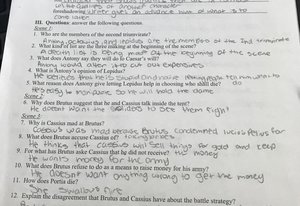 will be carried on around them
foreshadowing: writer gives an advance hint of what is to
come later
III. Questions: answer the following questions.
Scene 1:
1. Who are the members of the second triumvirate?
Antony, Octavius and Lepidus are the members of the 2nd triumvirate
2. What kind of list are the three making at the beginning of the scene?
A death list is being made at the beginning of this scene
3. What does Antony say they will do to Caesar's will?
Antony would alter it to cut out expenses
4. What is Antony's opinion of Lepidus?
He believes that he is stupid and
5. What reason does Antony give for letting Lepidus help in choosing who should die?
He's easy to manipulate so he will hold the blame
Scene 2:
6. Why does Brutus suggest that he and Cassius talk inside the tent?
He doesn't want the soldiers to see them fight
Scene 3:
7. Why is Cassius mad at Brutus?
Cassius was mad because Brutus condemned Lucius Pella for
8. What does Brutus accuse Cassius of? taking bribes
He thinks that Cassius will sell things for gold and keep
9. For what has Brutus asked Cassius that he did not receive? the money
He wants money for the army
10. What does Brutus refuse to do as a means to raise money for his army?
He doesn't want anything wrong to get the money
11. How does Portia die?
She swallows fire
12. Explain the disagreement that Brutus and Cassius have about the battle strategy?